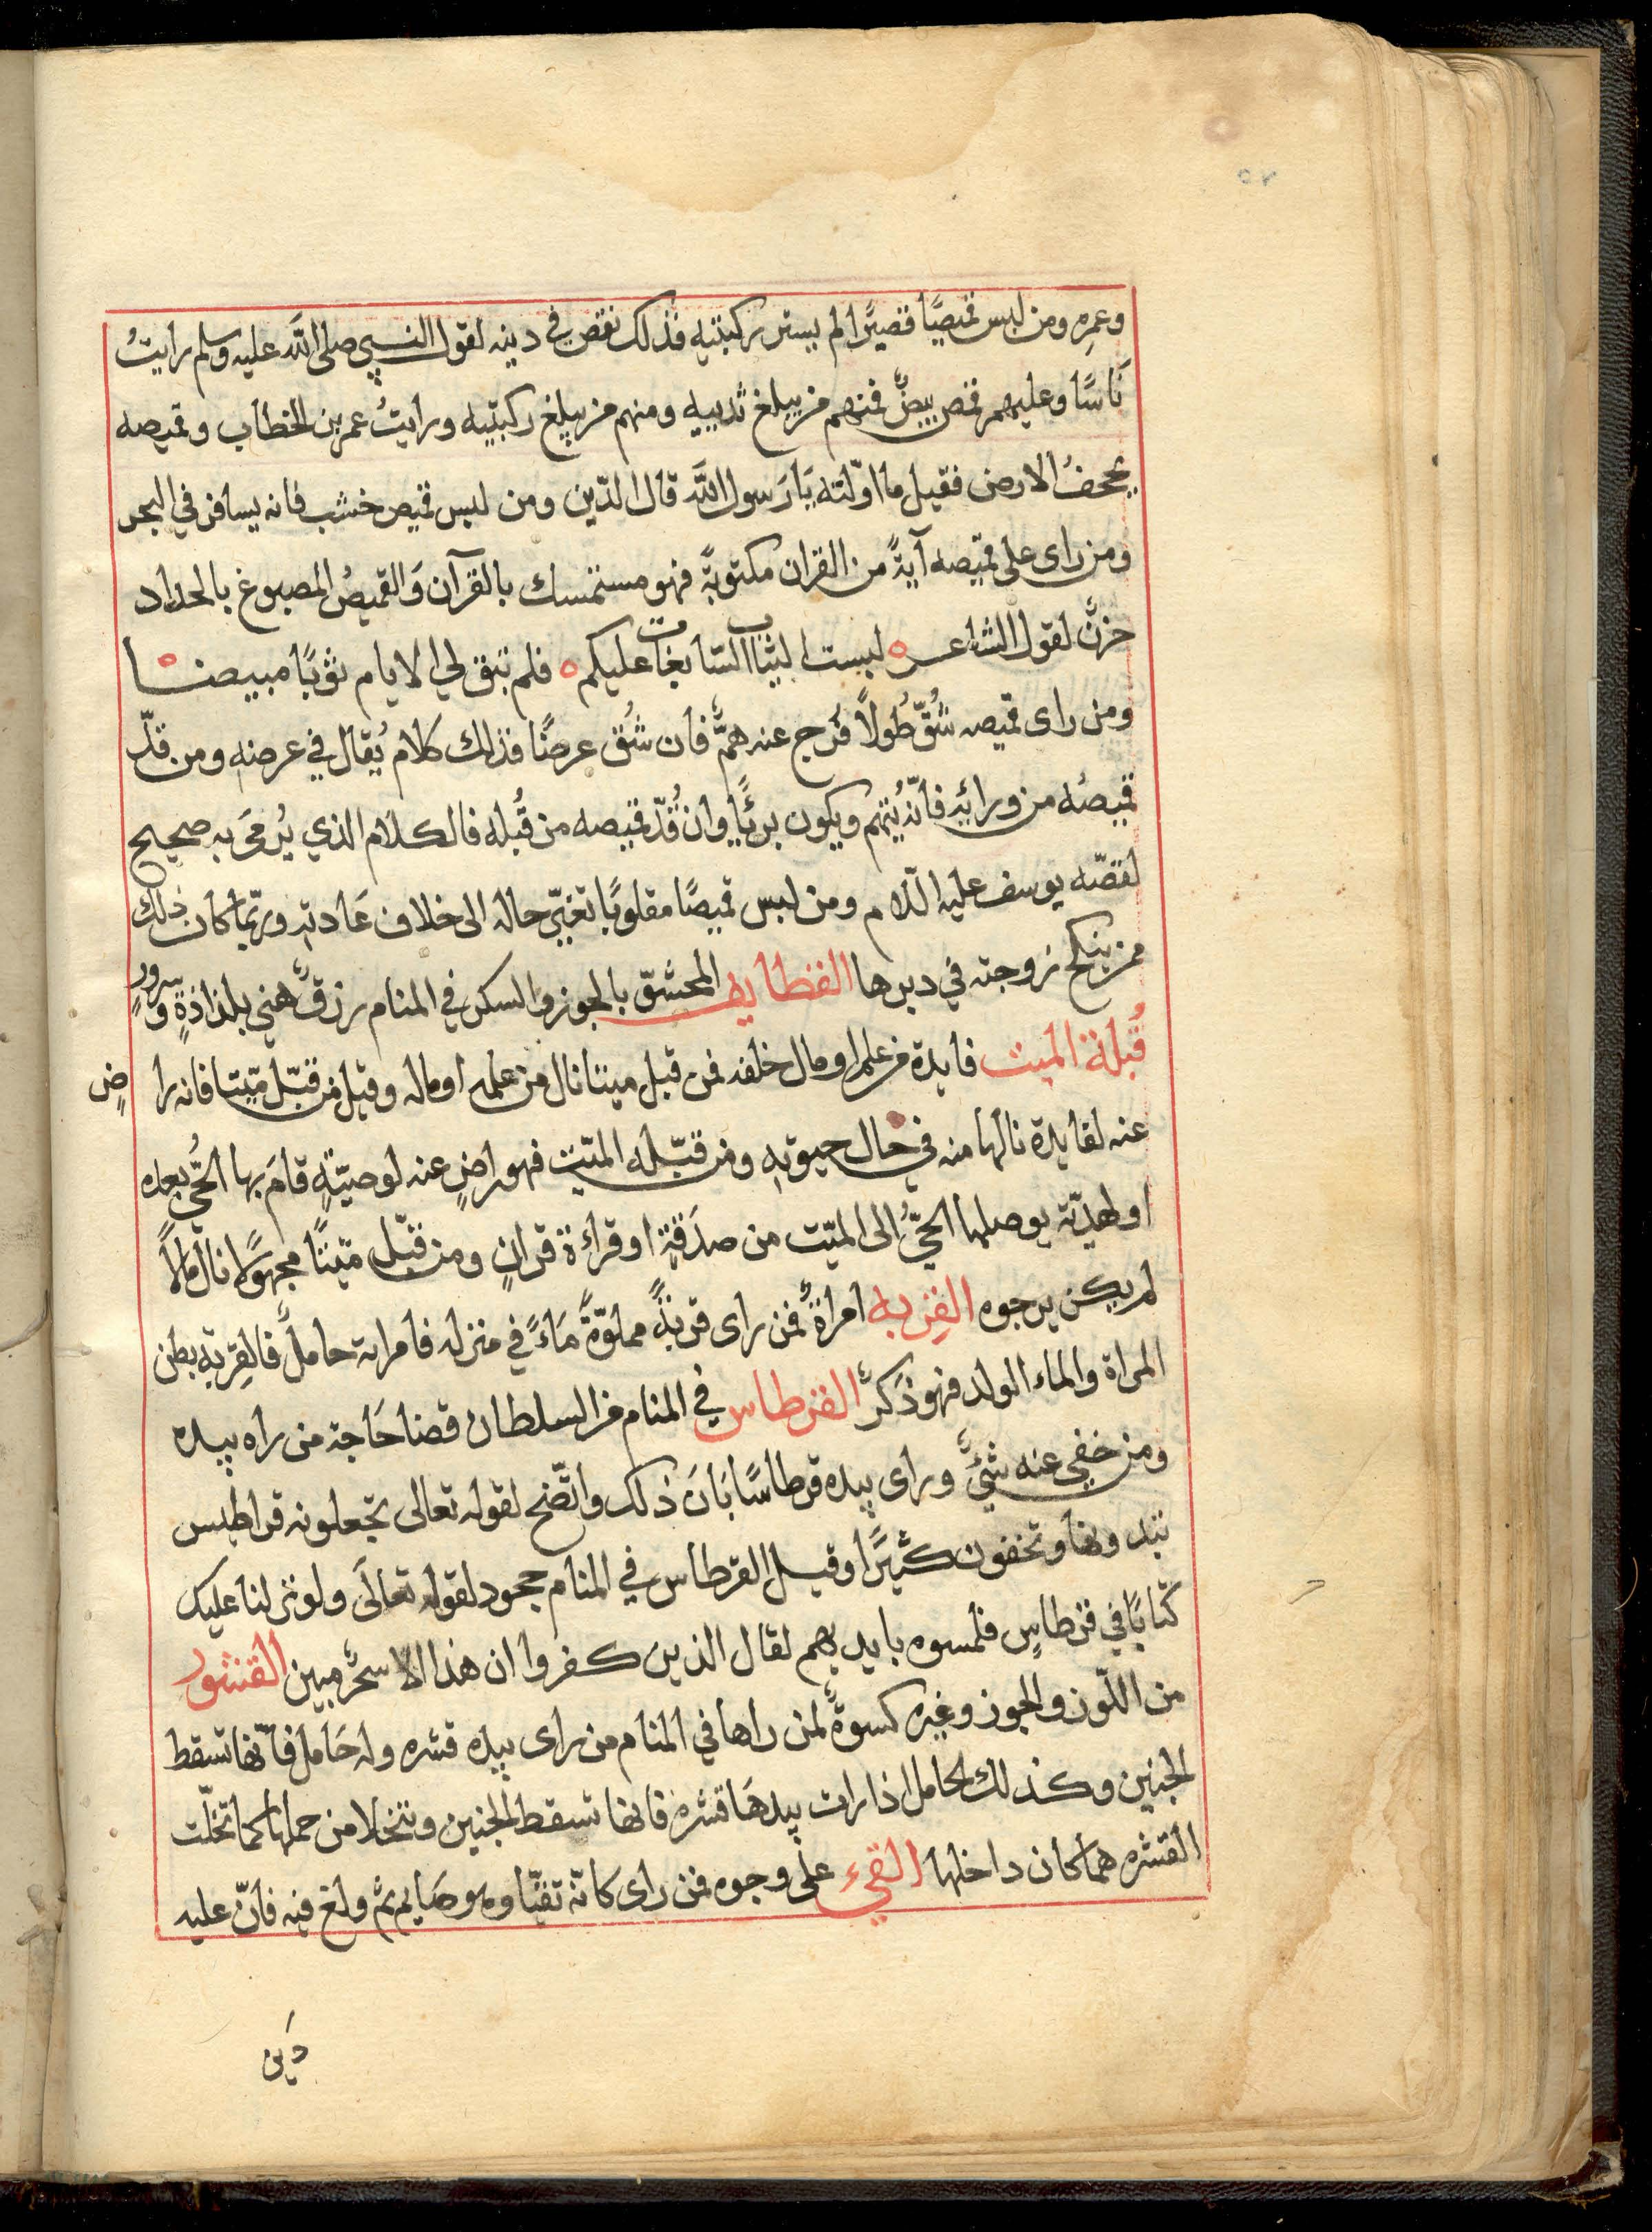 وعمره ومن لبس قميصًا قصيرًا لم يستر ركبتيه فذلك نقص في دينه لقول النبي صلى الله عليه وسلم رايتُ
نَاسًا وعليهم قمص بيضٌ فمنهم من يبلغ ثدييه ومنهم من يبلغ ركبتيه ورايتُ عمر بن الخطاب وقميصه
يحجفُ الارض فقيل ما اوّلته يَا رَسول الله قال الدّين ومن لبس قميص خشب فانه يسافر في البحر
ومن راى على قميصه آيةً من القران مكتوبةً فهو مستمسك بالقرآن وَالقميصُ المصبوغ بالحداد
حزنٌ لقول الشاعر لبست الثياب السّابغات عليكم فلم تبق لي الايام ثوبًا مبيضا
ومن راى قميصه شُقّ طُولاً فرج عنه همٌّ فان شُق عرضًا فذلك كلام يُقال في عرضه ومن قدّ
قميصُه من ورائه فانّه يُتهم ويكون بريًا وان قُدّ قميصه من قُبله فالكلام الذي يُرمَى به صحيح
لقصّه يوسف عليه السّلام ومن لبس قميصًا مقلوبًا تغيّر حاله الى خلاف عَادته وربّما كان ذلك
ممن ينكح زوجته في دبرها القطايف المحشوّ بالجوز والسكر في المنام رزقٌ هني بلذاذةٍ وسرورٍ
قُبلة الميت فايدة من علم او مال خلفه فمن قبل ميتا نال من علمه او ماله وقيل من قبّل ميّتا فانه راضٍ
عنه لفايدة نالها منه في حال حيوته ومن قبّله الميّت فهو راضٍ عنه لوصيّةٍ قامَ بها الحيّ بعده
او لهديّة يوصلها الحيُّ الى الميّت من صدَقةٍ او قراءة قرانٍ ومن قبّل ميّتًا مجهولا نال مالاً
لم يكن يرجوه القِربه امراةٌ فمن راى قربةً مملوّةً مَاءً في منزله فامراته حاملٌ فالقِربه بطن
المراة والماء الولد فهو ذكرٌ القرطاس في المنام من السلطان قضا حَاجة من راه بيده
ومن خفي عنه شيٌ وراى بيده قرطاسًا بَانَ ذلك واتّضح لقوله تعالى تجعلونه قراطيس
تبدونها وتخفون كثيرًا وقيل القرطاس في المنام جحود لقوله تعَالَى ولو نزلنا عليك
كتابًا في قرطاسٍ فلمسوه بايديهم لقال الذين كفروا ان هذا الا سحرٌ مبين القشور
من اللّوز والجوز وغيره كسوةٌ لمن راها في المنام من راى بيده قشره وله حَامل فانّها تسقط
الجنين وكذلك الحامل اذا رات بيدهَا قشره فانها تسقط الجنين وتتخلا من حملها كما تخلّت
القشره مما كان داخلها القيء على وجوه فمن راى كانّه تقيّا وهو صَايم ثم ولغ فيه فانّ عليه
دَين